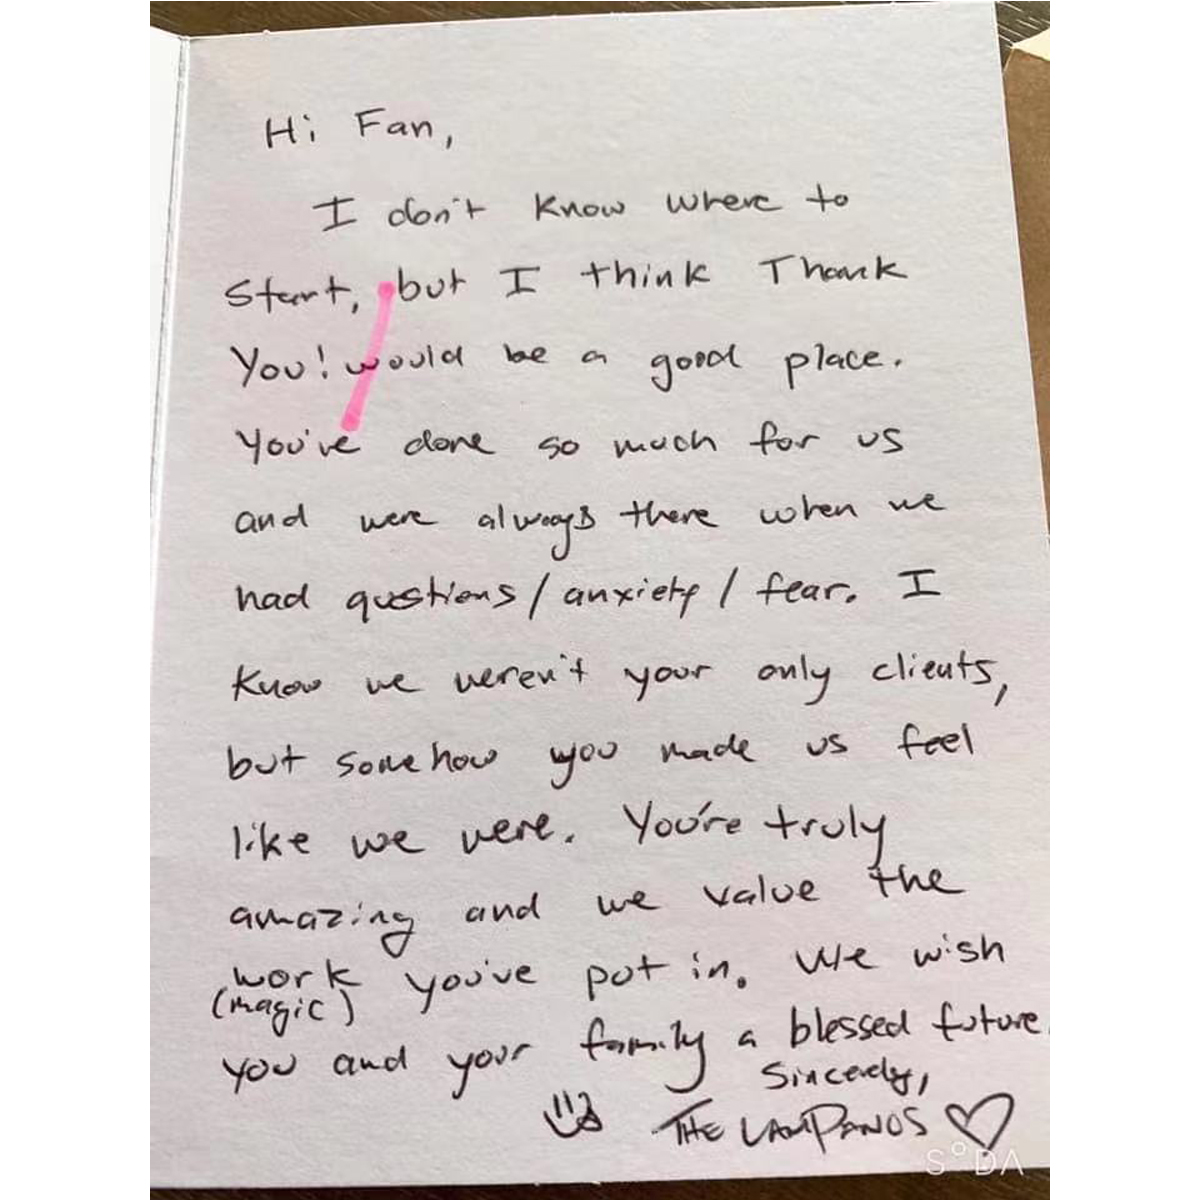 Hi Fan,
I don't know where to
start, but I think Thank
You! would be a good place.
You've done so much for us
and were always there when we
had qustions/anxiety/fear. I
know we weren't your only clients,
but somehow you made us feel
like we were. You're truly
amazing and we value the
work you've put in. We wish
(magic)
you and your family a blessed future
Sincerely,
THE LAMPANOS
SODA